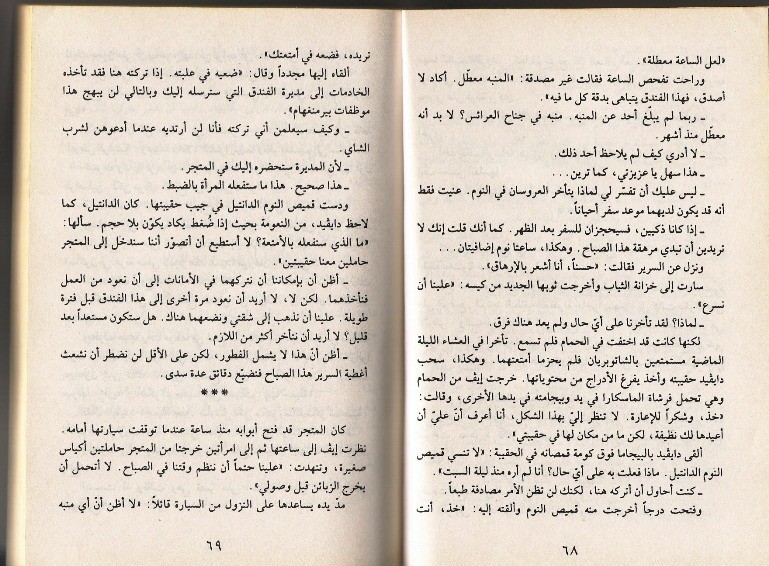 «لعل الساعة معطلة».
وراحت تفحص الساعة فقالت غير مصدقة: «المنبه معطل. أكاد لا
أصدق، فهذا الفندق يتباهى بدقة كل ما فيه».
ـ ربما لم يبلّغ أحد عن المنبه. منبه في جناح العرائس؟ لا بد أنه
معطّل منذ أشهر.
ـ لا أدري كيف لم يلاحظ أحد ذلك.
ـ هذا سهل يا عزيزتي، كما ترين...
ـ ليس عليك أن تفسّر لي لماذا يتأخر العروسان في النوم. عنيت فقط
أنه قد يكون لديهما موعد سفر أحياناً.
ـ إذا كانا ذكيين، فسيحجزان للسفر بعد الظهر. كما أنك قلت إنك لا
تريدين أن تبدي مرهقة هذا الصباح. وهكذا، ساعتا نوم إضافيتان...
ونزل عن السرير فقالت: «حسناً، أنا أشعر بالإرهاق».
سارت إلى خزانة الثياب وأخرجت ثوبها الجديد من كيسه: «علينا أن
نسرع».
ـ لماذا؟ لقد تأخرنا على أيّ حال ولم يعد هناك فرق.
لكنها كانت قد اختفت في الحمام فلم تسمع. تأخرا في العشاء الليلة
الماضية مستمتعين بالشاتوبريان فلم يحزما أمتعتهما. وهكذا، سحب
دايڤيد حقيبته وأخذ يفرغ الأدراج من محتوياتها. خرجت إيڤ من الحمام
وهي تحمل فرشاة الماسكارا في يد وبيجامته في يدها الأخرى، وقالت:
«خذ، وشكراً للإعارة. لا تنظر إليّ بهذا الشكل، أنا أعرف أنّ عليّ أن
أعيدها لك نظيفة، لكن ما من مكان لها في حقيبتي».
ألقى دايڤيد بالبيجاما فوق كومة قمصانه في الحقيبة: «لا تنسي قميص
النوم الدانتيل. ماذا فعلت به على أيّ حال؟ أنا لم أره منذ ليلة السبت».
ـ كنت أحاول أن أتركه هنا، لكنك لن تظن الأمر مصادفة طبعاً.
وفتحت درجاً أخرجت منه قميص النوم وألقته إليه: «خذ، أنت
٦٨
تريده، فضعه في أمتعتك».
ألقاه إليها مجدداً وقال: «ضعيه في علبته. إذا تركته هنا فقد تأخذه
الخادمات إلى مديرة الفندق التي سترسله إليك وبالتالي لن يبهج هذا
موظفات بيرمنغهام».
ـ وكيف سيعلمن أني تركته فأنا لن أرتديه عندما أدعوهن لشرب
الشاي.
ـ لأن المديرة ستحضره إليك في المتجر.
ـ هذا صحيح. هذا ما ستفعله المرأة بالضبط.
ودست قميص النوم الدانتيل في جيب حقيبتها. كان الدانتيل، كما
لاحظ دايڤيد، من النعومة بحيث إذا ضُغط يكاد يكوّن بلا حجم. سألها:
«ما الذي سنفعله بالأمتعة؟ لا أستطيع أن أتصوّر أننا سندخل إلى المتجر
حاملين معنا حقيبتين».
ـ أظن أن بإمكاننا أن نتركهما في الأمانات إلى أن نعود من العمل
فنأخذهما. لكن لا، لا أريد أن نعود مرة أخرى إلى هذا الفندق قبل فترة
طويلة. علينا أن نذهب إلى شقتي ونضعهما هناك. هل ستكون مستعداً بعد
قليل؟ لا أريد أن نتأخر أكثر من اللازم.
ـ أظن أنّ هذا لا يشمل الفطور، لكن على الأقل لن نضطر أن نشعث
أغطية السرير هذا الصباح فنضيّع دقائق عدة سدى.
***
كان المتجر قد فتح أبوابه منذ ساعة عندما توقفت سيارتها أمامه.
نظرت إيڤ إلى ساعتها ثم إلى امرأتين خرجتا من المتجر حاملتين أكياس
صغيرة، وتنهدت: «علينا حتماً أن ننظم وقتنا في الصباح. لا أتحمل أن
يخرج الزبائن قبل وصولي».
مدّ يده يساعدها على النزول من السيارة قائلاً: «لا أظن أنّ أي منبه
٦٩